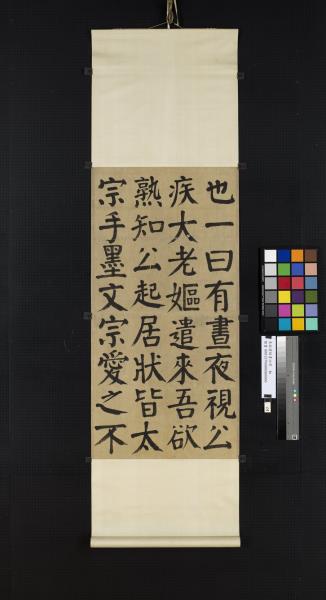 也一曰有晝夜視公
疾大老嫗遣來吾欲
熟知公起居狀皆太
宗手墨文宗愛之不